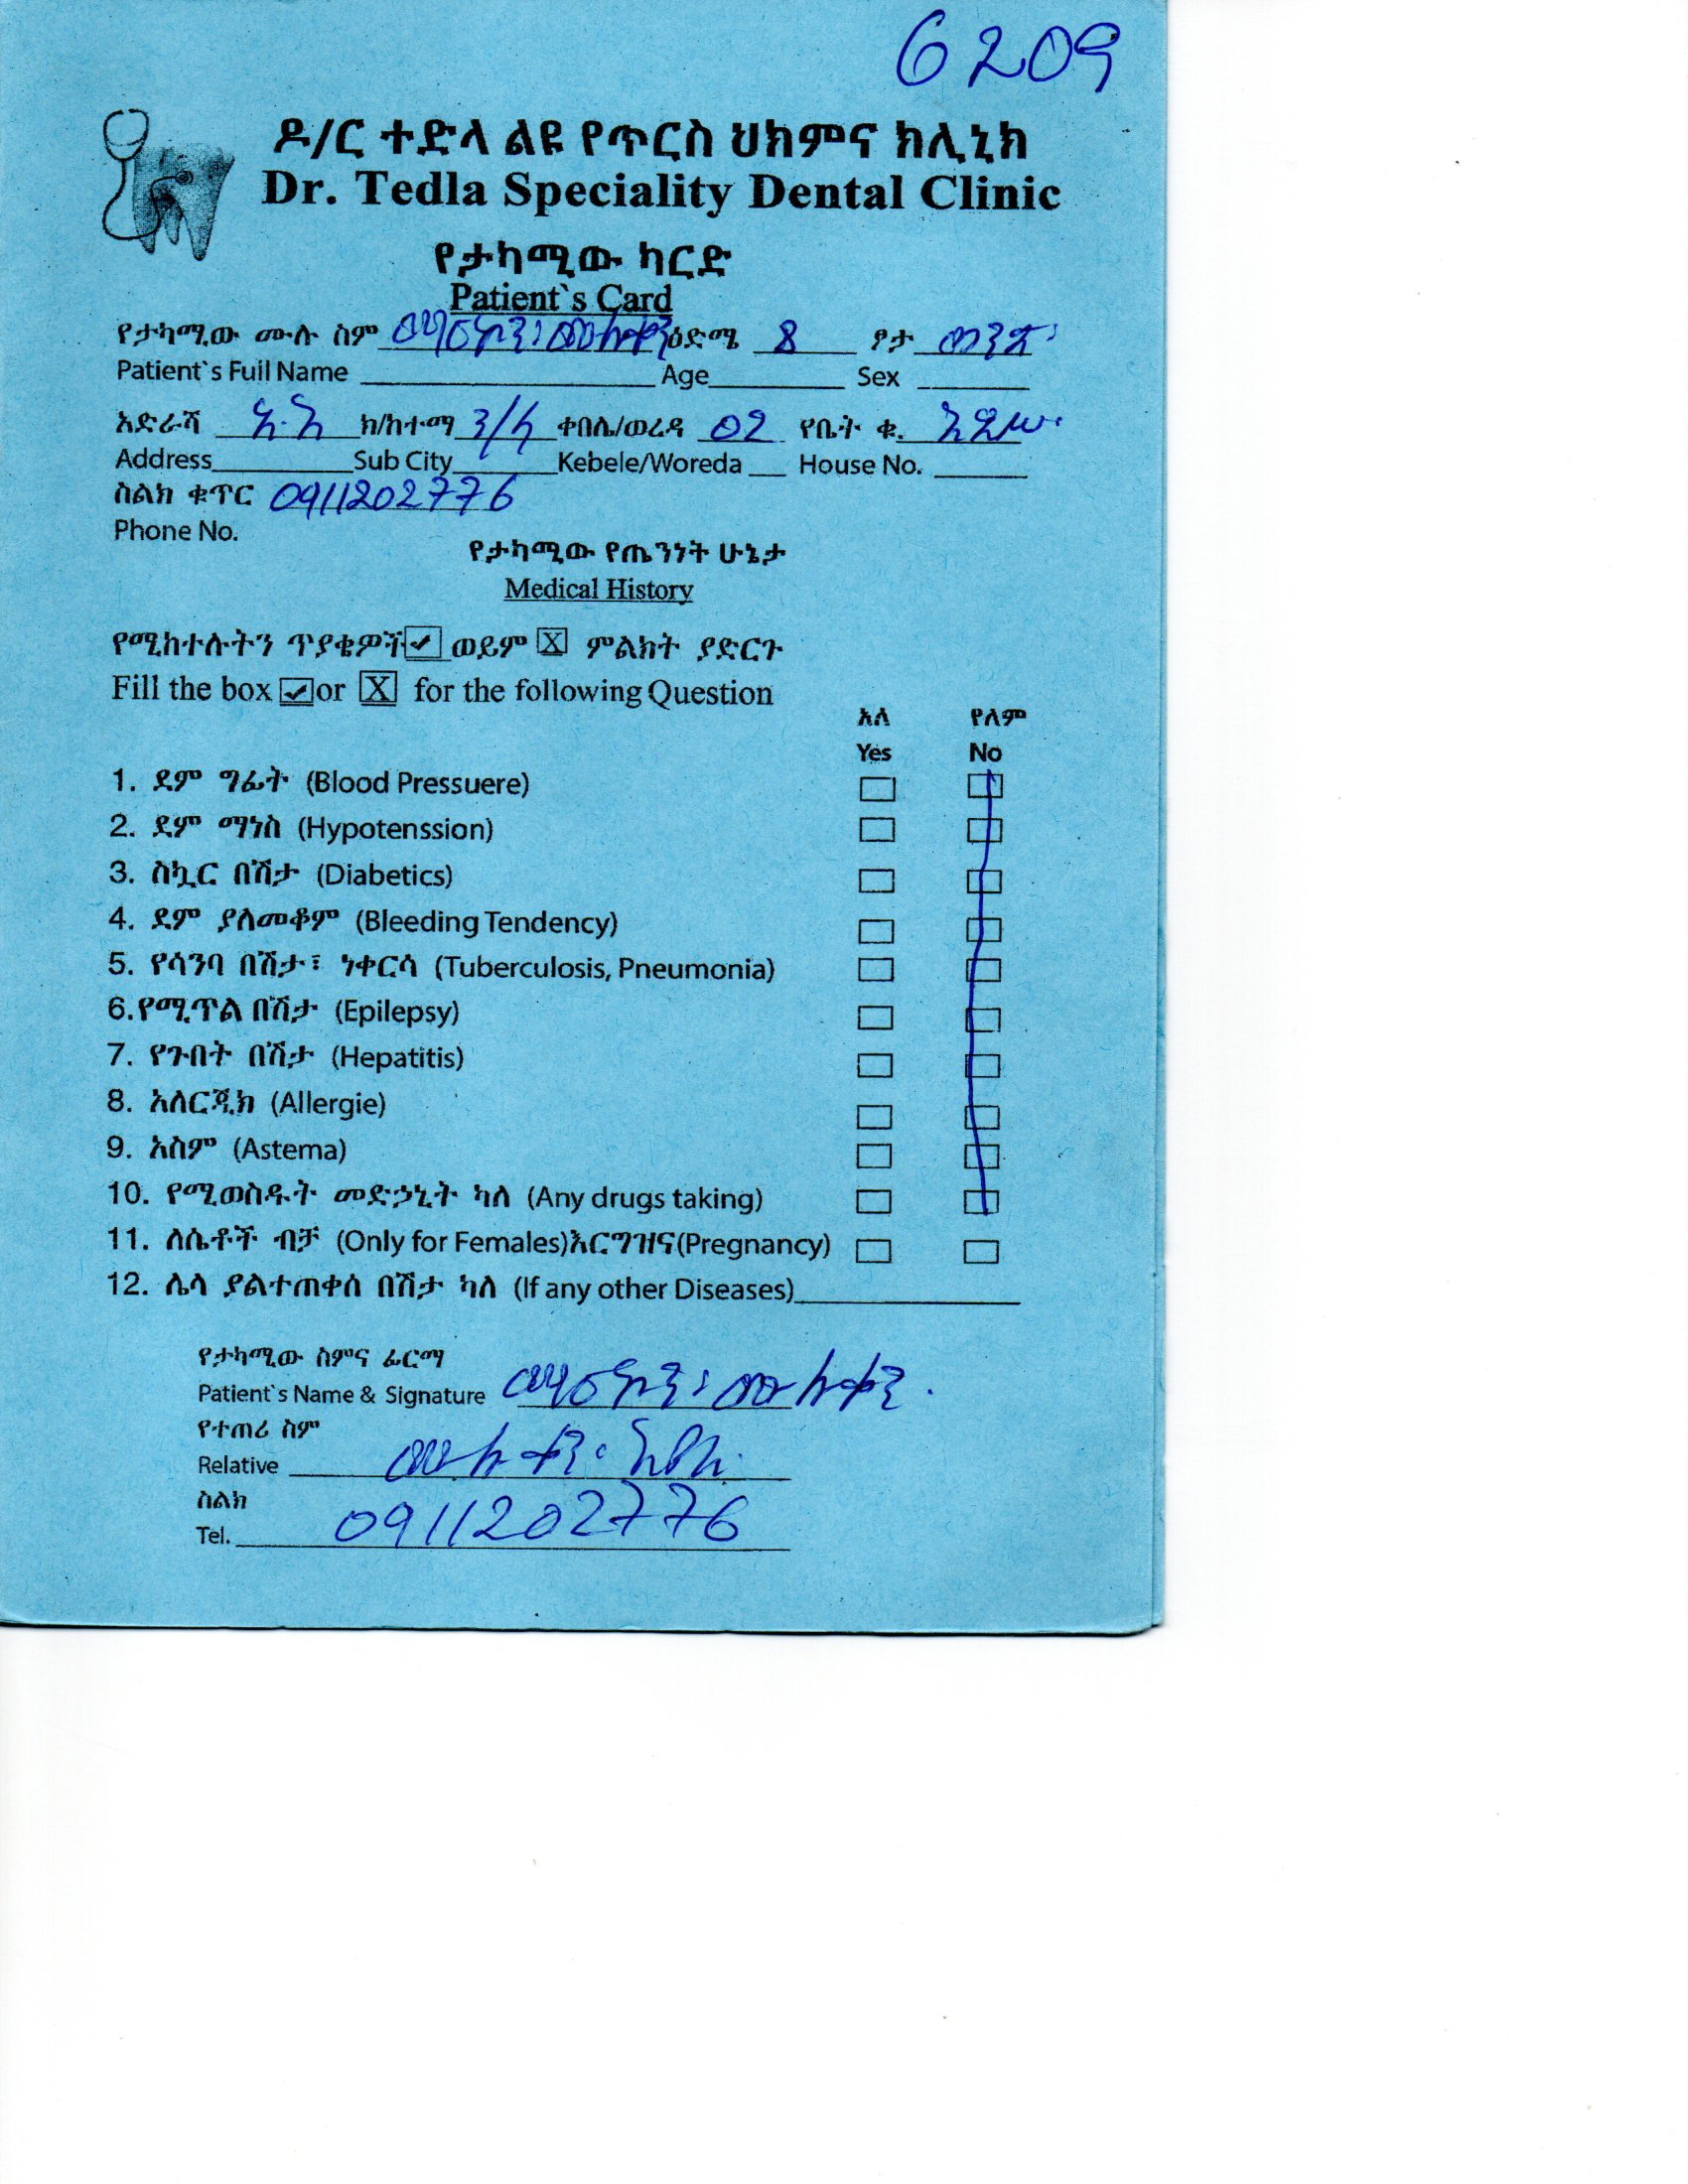 6209
ዶ/ር ተድላ ልዩ የጥርስ ህክምና ክሊኒክ
Dr. Tedla Speciality Dental Clinic
የታካሚው ካርድ
Patient`s Card
የታካሚው ሙሉ ስም ዕድሜ 8 ፆታ ወንድ
Patient`s Fuil Name Age Sex
አድራሻ አ.አ ክ/ከተማ ቀበሌ/ወረዳ 02 የቤት ቁ.
Address Sub City Kebele/Woreda House No.
ስልክ ቁጥር 0911202776
Phone No.
የታካሚው የጤንነት ሁኔታ
Medical History
የሚከተሉትን ጥያቄዎች ✓ ወይም X ምልክት ያድርጉ
Fill the box ✓ or X for the following Question
አለ የለም
Yes No
1. ደም ግፊት (Blood Pressuere)
2. ደም ማነስ (Hypotenssion)
3. ስኳር በሽታ (Diabetics)
4. ደም ያለመቆም (Bleeding Tendency)
5. የሳንባ በሽታ፣ ነቀርሳ (Tuberculosis, Pneumonia)
6.የሚጥል በሽታ (Epilepsy)
7. የጉበት በሽታ (Hepatitis)
8. አለርጂክ (Allergie)
9. አስም (Astema)
10. የሚወስዱት መድኃኒት ካለ (Any drugs taking)
11. ለሴቶች ብቻ (Only for Females)እርግዝና(Pregnancy)
12. ሌላ ያልተጠቀሰ በሽታ ካለ (If any other Diseases)
የታካሚው ስምና ፊርማ
Patient`s Name & Signature
የተጠሪ ስም
Relative
ስልክ
Tel. 0911202776